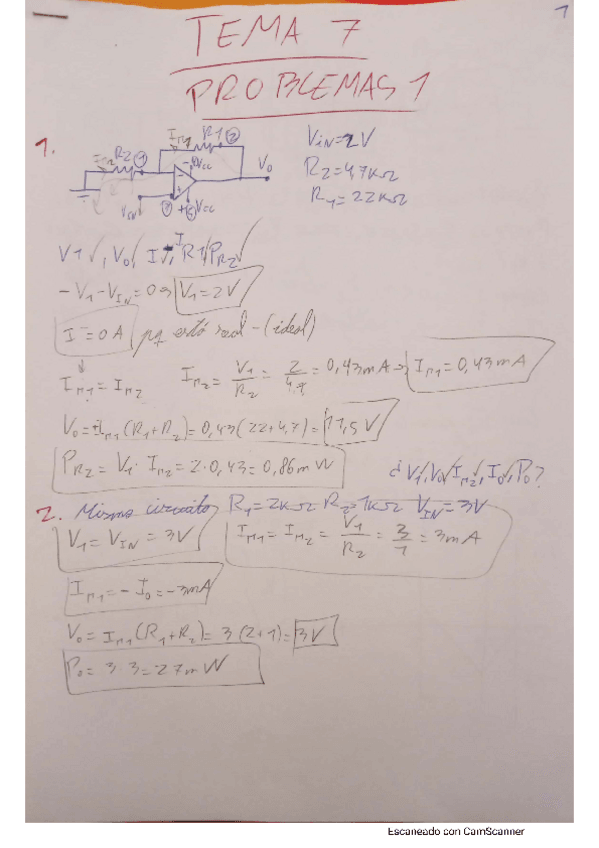 1
TEMA 7
PROBLEMAS 1
1.
R2 1 IR1 R1 2
-Vcc
V0
VIN
+Vcc
VIN=2V
R2=4,7KΩ
R1=22KΩ
V1√, V0√, I√, IR1√ PR2√
-V1-VIN=0⇒ V1=2V
I=0A pq está real-(ideal)
IR1=IR2 IR2=V1/R2=2/4,7=0,43mA⇒ IR1=0,43mA
V0=IR1(R1+R2)=0,43(22+4,7)=11,5V
PR2=V1·IR2=2·0,43=0,86mW
¿V1√, V0√, IR2√, I0√, P0?
2. Mismo circuito, R1=2KΩ R2=1KΩ VIN=3V
V1=VIN=3V IR1=IR2=V1/R2=3/1=3mA
IR1=-I0=-3mA
V0=IR1(R1+R2)=3(2+1)=3V
P0=3·3=27mW
Escaneado con CamScanner